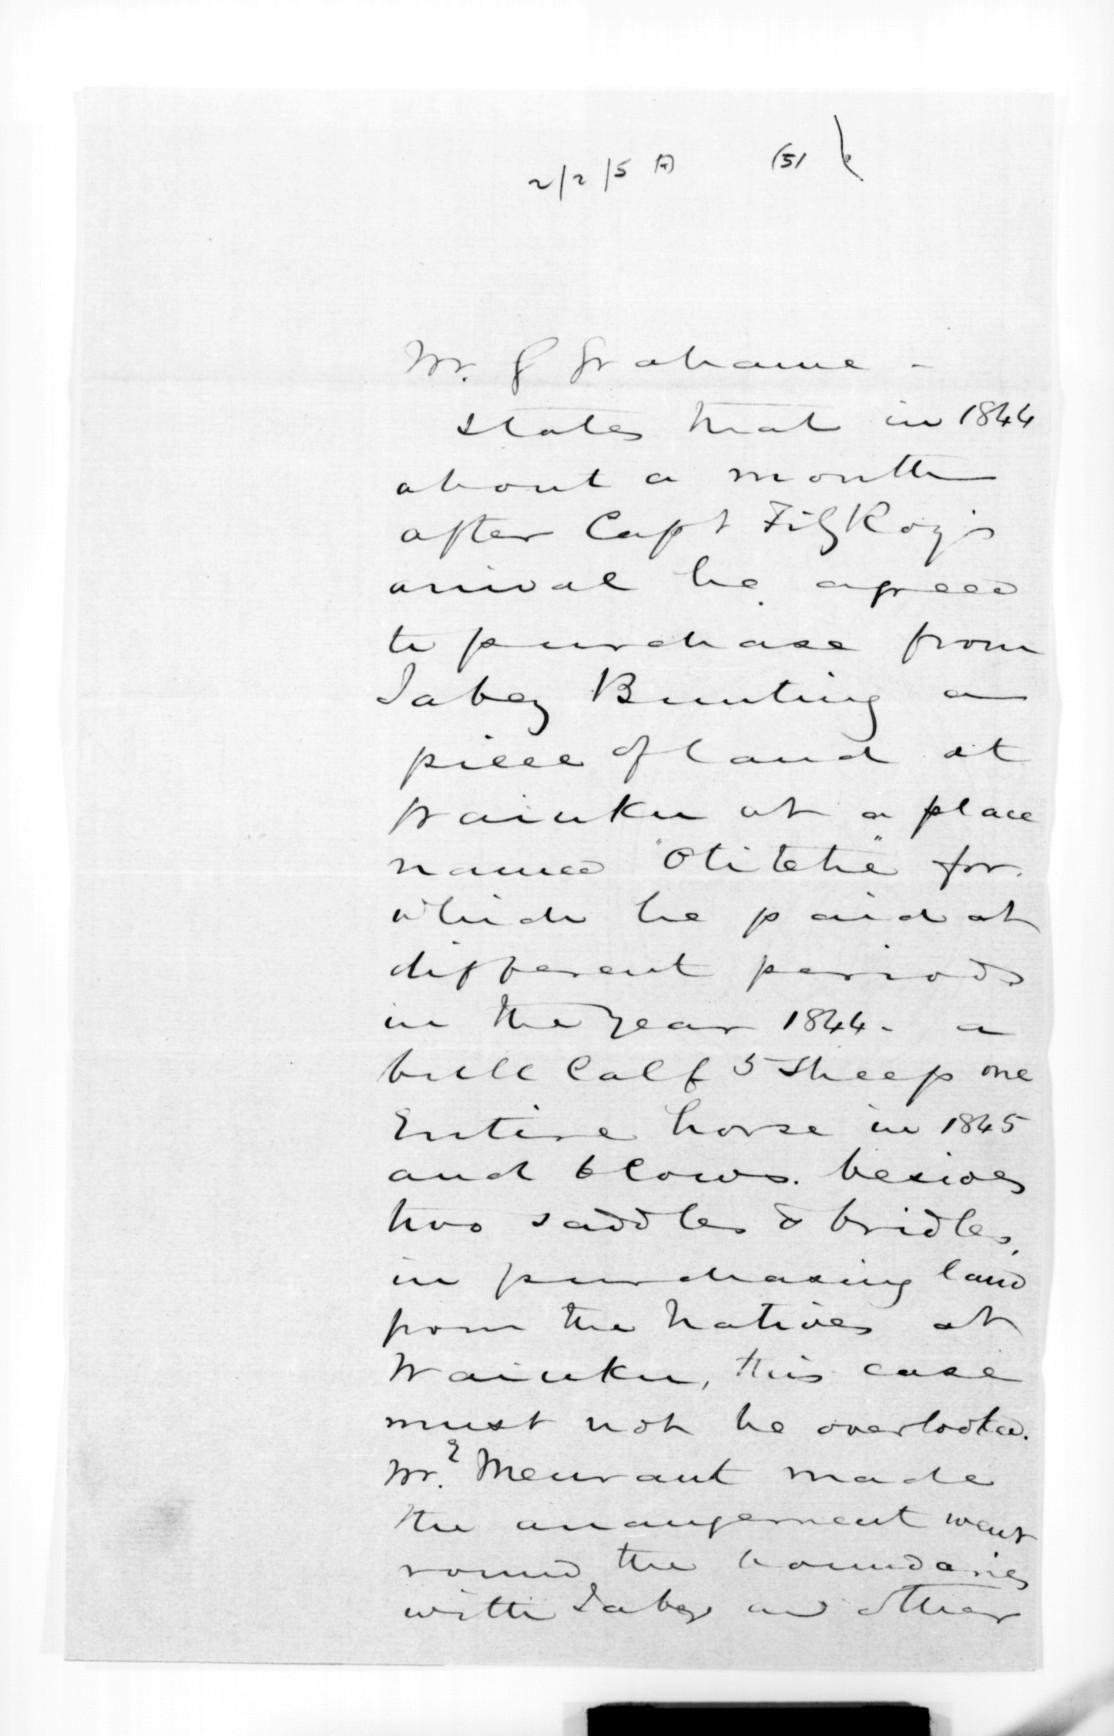 2/2/5 A (51
Mr. G Grahame -
states that in 1844
about a month
after Capt FitzRoy's
arrival he agreed
to purchase from
Jabez Bunting a
piece of land at
Waiuku at a place
named "Otitehe" for
which he paid at
different periods
in the year 1844 - a
bull Calf 5 sheep one
Entire horse in 1845
and 6 Cows. besides
two saddles & bridles,
in purchasing land
from the Natives at
Waiuku, this case
must not be overlooked.
Mr. E Meurant made
the arrangement went
round the boundaries
with Jabez and other